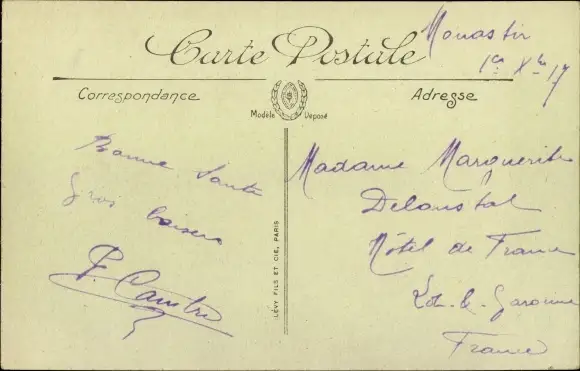 Carte Postale
Monastir
1er Xbre 17
Correspondance
Adresse
Modèle Déposé
Bonne Santé
Gros baisers
Madame Marguerite
Deloustal
Hôtel de France
Lot-&-Garonne
France
LÉVY FILS ET CIE, PARIS